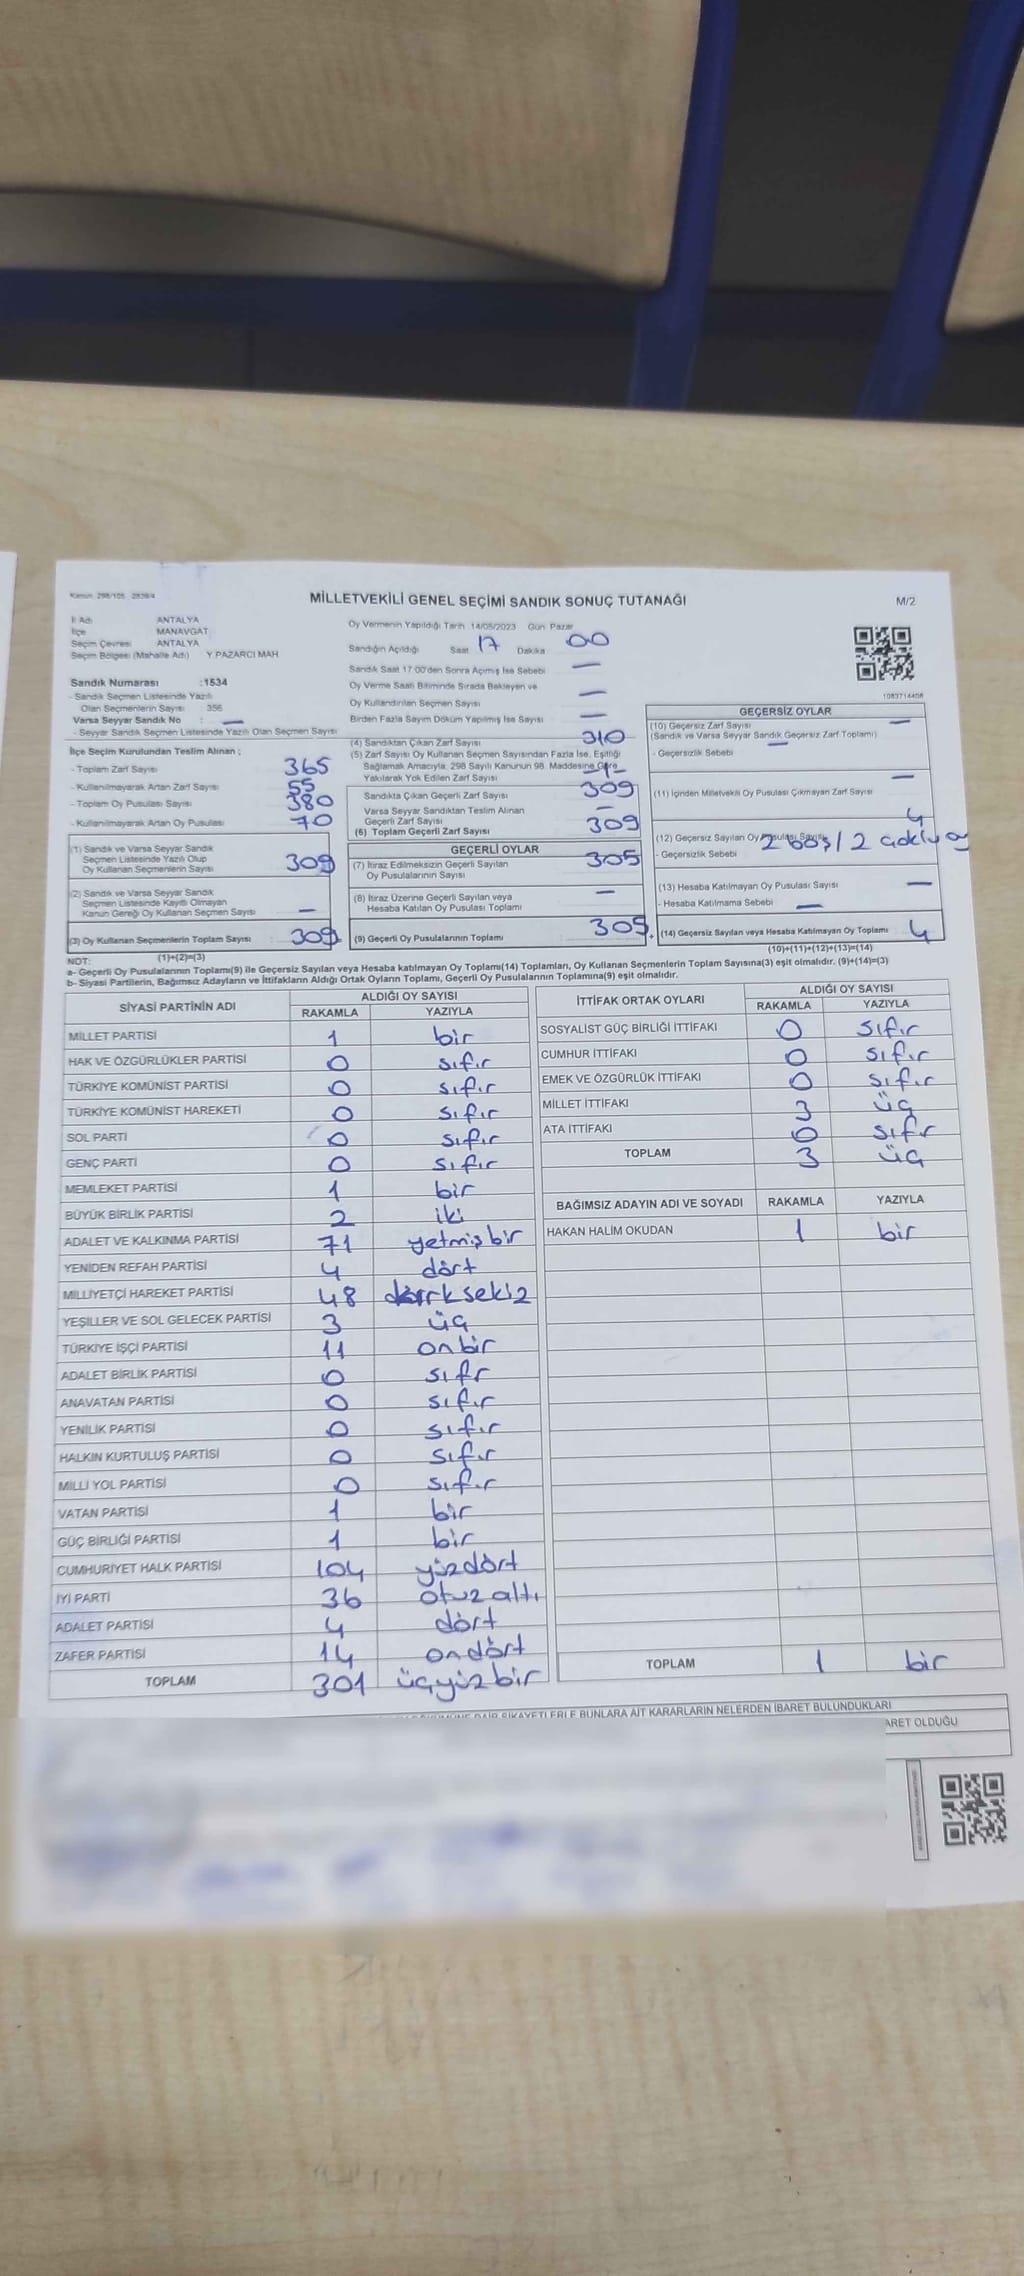 Kanun: 298/105 2839/4
MİLLETVEKİLİ GENEL SEÇİMİ SANDIK SONUÇ TUTANAĞI
M/2
İl Adı ANTALYA
İlçe MANAVGAT
Seçim Çevresi ANTALYA
Seçim Bölgesi (Mahalle Adı) Y.PAZARCI MAH
Sandık Numarası :1534
- Sandık Seçmen Listesinde Yazılı
Olan Seçmenlerin Sayısı 356
Varsa Seyyar Sandık No : —
- Seyyar Sandık Seçmen Listesinde Yazılı Olan Seçmen Sayısı
İlçe Seçim Kurulundan Teslim Alınan ;
- Toplam Zarf Sayısı 365
- Kullanılmayarak Artan Zarf Sayısı 55
- Toplam Oy Pusulası Sayısı 380
- Kullanılmayarak Artan Oy Pusulası 70
(1) Sandık ve Varsa Seyyar Sandık
Seçmen Listesinde Yazılı Olup
Oy Kullanan Seçmenlerin Sayısı 309
(2) Sandık ve Varsa Seyyar Sandık
Seçmen Listesinde Kayıtlı Olmayan
Kanun Gereği Oy Kullanan Seçmen Sayısı —
(3) Oy Kullanan Seçmenlerin Toplam Sayısı 309
(1)+(2)=(3)
Oy Vermenin Yapıldığı Tarih 14/05/2023 Gün Pazar
Sandığın Açıldığı Saat 17 Dakika 00
Sandık Saat 17:00'den Sonra Açılmış İse Sebebi —
Oy Verme Saati Bitiminde Sırada Bekleyen ve
Oy Kullandırılan Seçmen Sayısı —
Birden Fazla Sayım Döküm Yapılmış İse Sayısı —
(4) Sandıktan Çıkan Zarf Sayısı 310
(5) Zarf Sayısı Oy Kullanan Seçmen Sayısından Fazla İse, Eşitliği
Sağlamak Amacıyla, 298 Sayılı Kanunun 98. Maddesine Göre
Yakılarak Yok Edilen Zarf Sayısı -1-
Sandıkta Çıkan Geçerli Zarf Sayısı 309
Varsa Seyyar Sandıktan Teslim Alınan
Geçerli Zarf Sayısı —
(6) Toplam Geçerli Zarf Sayısı 309
GEÇERLİ OYLAR
(7) İtiraz Edilmeksizin Geçerli Sayılan
Oy Pusulalarının Sayısı 305
(8) İtiraz Üzerine Geçerli Sayılan veya
Hesaba Katılan Oy Pusulası Toplamı —
(9) Geçerli Oy Pusulalarının Toplamı 305.
1083714408
GEÇERSİZ OYLAR
(10) Geçersiz Zarf Sayısı —
(Sandık ve Varsa Seyyar Sandık Geçersiz Zarf Toplamı)
- Geçersizlik Sebebi —
(11) İçinden Milletvekili Oy Pusulası Çıkmayan Zarf Sayısı —
(12) Geçersiz Sayılan Oy Pusulası Sayısı 4
- Geçersizlik Sebebi 2 boş / 2 çoklu oy
(13) Hesaba Katılmayan Oy Pusulası Sayısı —
- Hesaba Katılmama Sebebi —
(14) Geçersiz Sayılan veya Hesaba Katılmayan Oy Toplamı 4
(10)+(11)+(12)+(13)=(14)
NOT:
a- Geçerli Oy Pusulalarının Toplamı(9) ile Geçersiz Sayılan veya Hesaba katılmayan Oy Toplamı(14) Toplamları, Oy Kullanan Seçmenlerin Toplam Sayısına(3) eşit olmalıdır. (9)+(14)=(3)
b- Siyasi Partilerin, Bağımsız Adayların ve İttifakların Aldığı Ortak Oyların Toplamı, Geçerli Oy Pusulalarının Toplamına(9) eşit olmalıdır.
SİYASİ PARTİNİN ADI ALDIĞI OY SAYISI
RAKAMLA YAZIYLA
MİLLET PARTİSİ 1 bir
HAK VE ÖZGÜRLÜKLER PARTİSİ 0 sıfır
TÜRKİYE KOMÜNİST PARTİSİ 0 sıfır
TÜRKİYE KOMÜNİST HAREKETİ 0 sıfır
SOL PARTİ 0 sıfır
GENÇ PARTİ 0 sıfır
MEMLEKET PARTİSİ 1 bir
BÜYÜK BİRLİK PARTİSİ 2 iki
ADALET VE KALKINMA PARTİSİ 71 yetmiş bir
YENİDEN REFAH PARTİSİ 4 dört
MİLLİYETÇİ HAREKET PARTİSİ 48 kırk sekiz
YEŞİLLER VE SOL GELECEK PARTİSİ 3 üç
TÜRKİYE İŞÇİ PARTİSİ 11 on bir
ADALET BİRLİK PARTİSİ 0 sıfr
ANAVATAN PARTİSİ 0 sıfır
YENİLİK PARTİSİ 0 sıfır
HALKIN KURTULUŞ PARTİSİ 0 sıfır
MİLLİ YOL PARTİSİ 0 sıfır
VATAN PARTİSİ 1 bir
GÜÇ BİRLİĞİ PARTİSİ 1 bir
CUMHURİYET HALK PARTİSİ 104 yüzdört
İYİ PARTİ 36 otuz altı
ADALET PARTİSİ 4 dört
ZAFER PARTİSİ 14 on dört
TOPLAM 301 üçyüz bir
İTTİFAK ORTAK OYLARI ALDIĞI OY SAYISI
RAKAMLA YAZIYLA
SOSYALİST GÜÇ BİRLİĞİ İTTİFAKI 0 sıfır
CUMHUR İTTİFAKI 0 sıfır
EMEK VE ÖZGÜRLÜK İTTİFAKI 0 sıfır
MİLLET İTTİFAKI 3 üç
ATA İTTİFAKI 0 sıfr
TOPLAM 3 üç
BAĞIMSIZ ADAYIN ADI VE SOYADI RAKAMLA YAZIYLA
HAKAN HALİM OKUDAN 1 bir
TOPLAM 1 bir
DAİR ŞİKAYETLERLE BUNLARA AİT KARARLARIN NELERDEN İBARET BULUNDUKLARI
ARET OLDUĞU